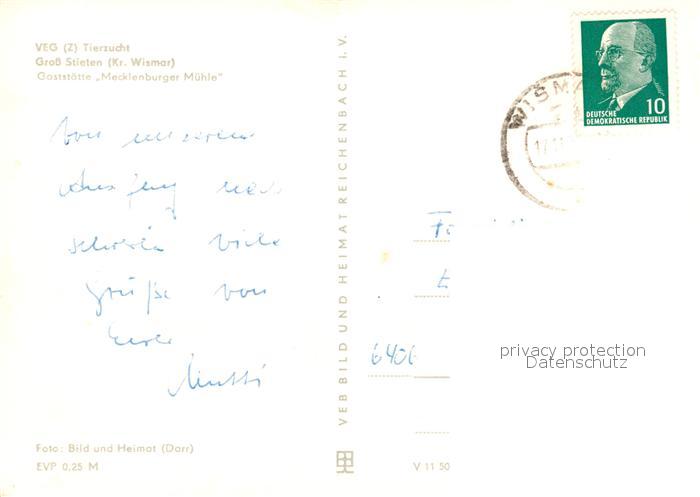 VEG (Z) Tierzucht
Groß Stieten (Kr. Wismar)
Gaststätte „Mecklenburger Mühle"
Von unserem
Ausflug nach
Schwerin viele
Grüße von
Eurer
Mutti
Foto: Bild und Heimat (Darr)
EVP 0,25 M
VEB BILD UND HEIMAT REICHENBACH I. V.
V 11 50
WISMA
10
DEUTSCHE
DEMOKRATISCHE REPUBLIK
6406
privacy protection
Datenschutz